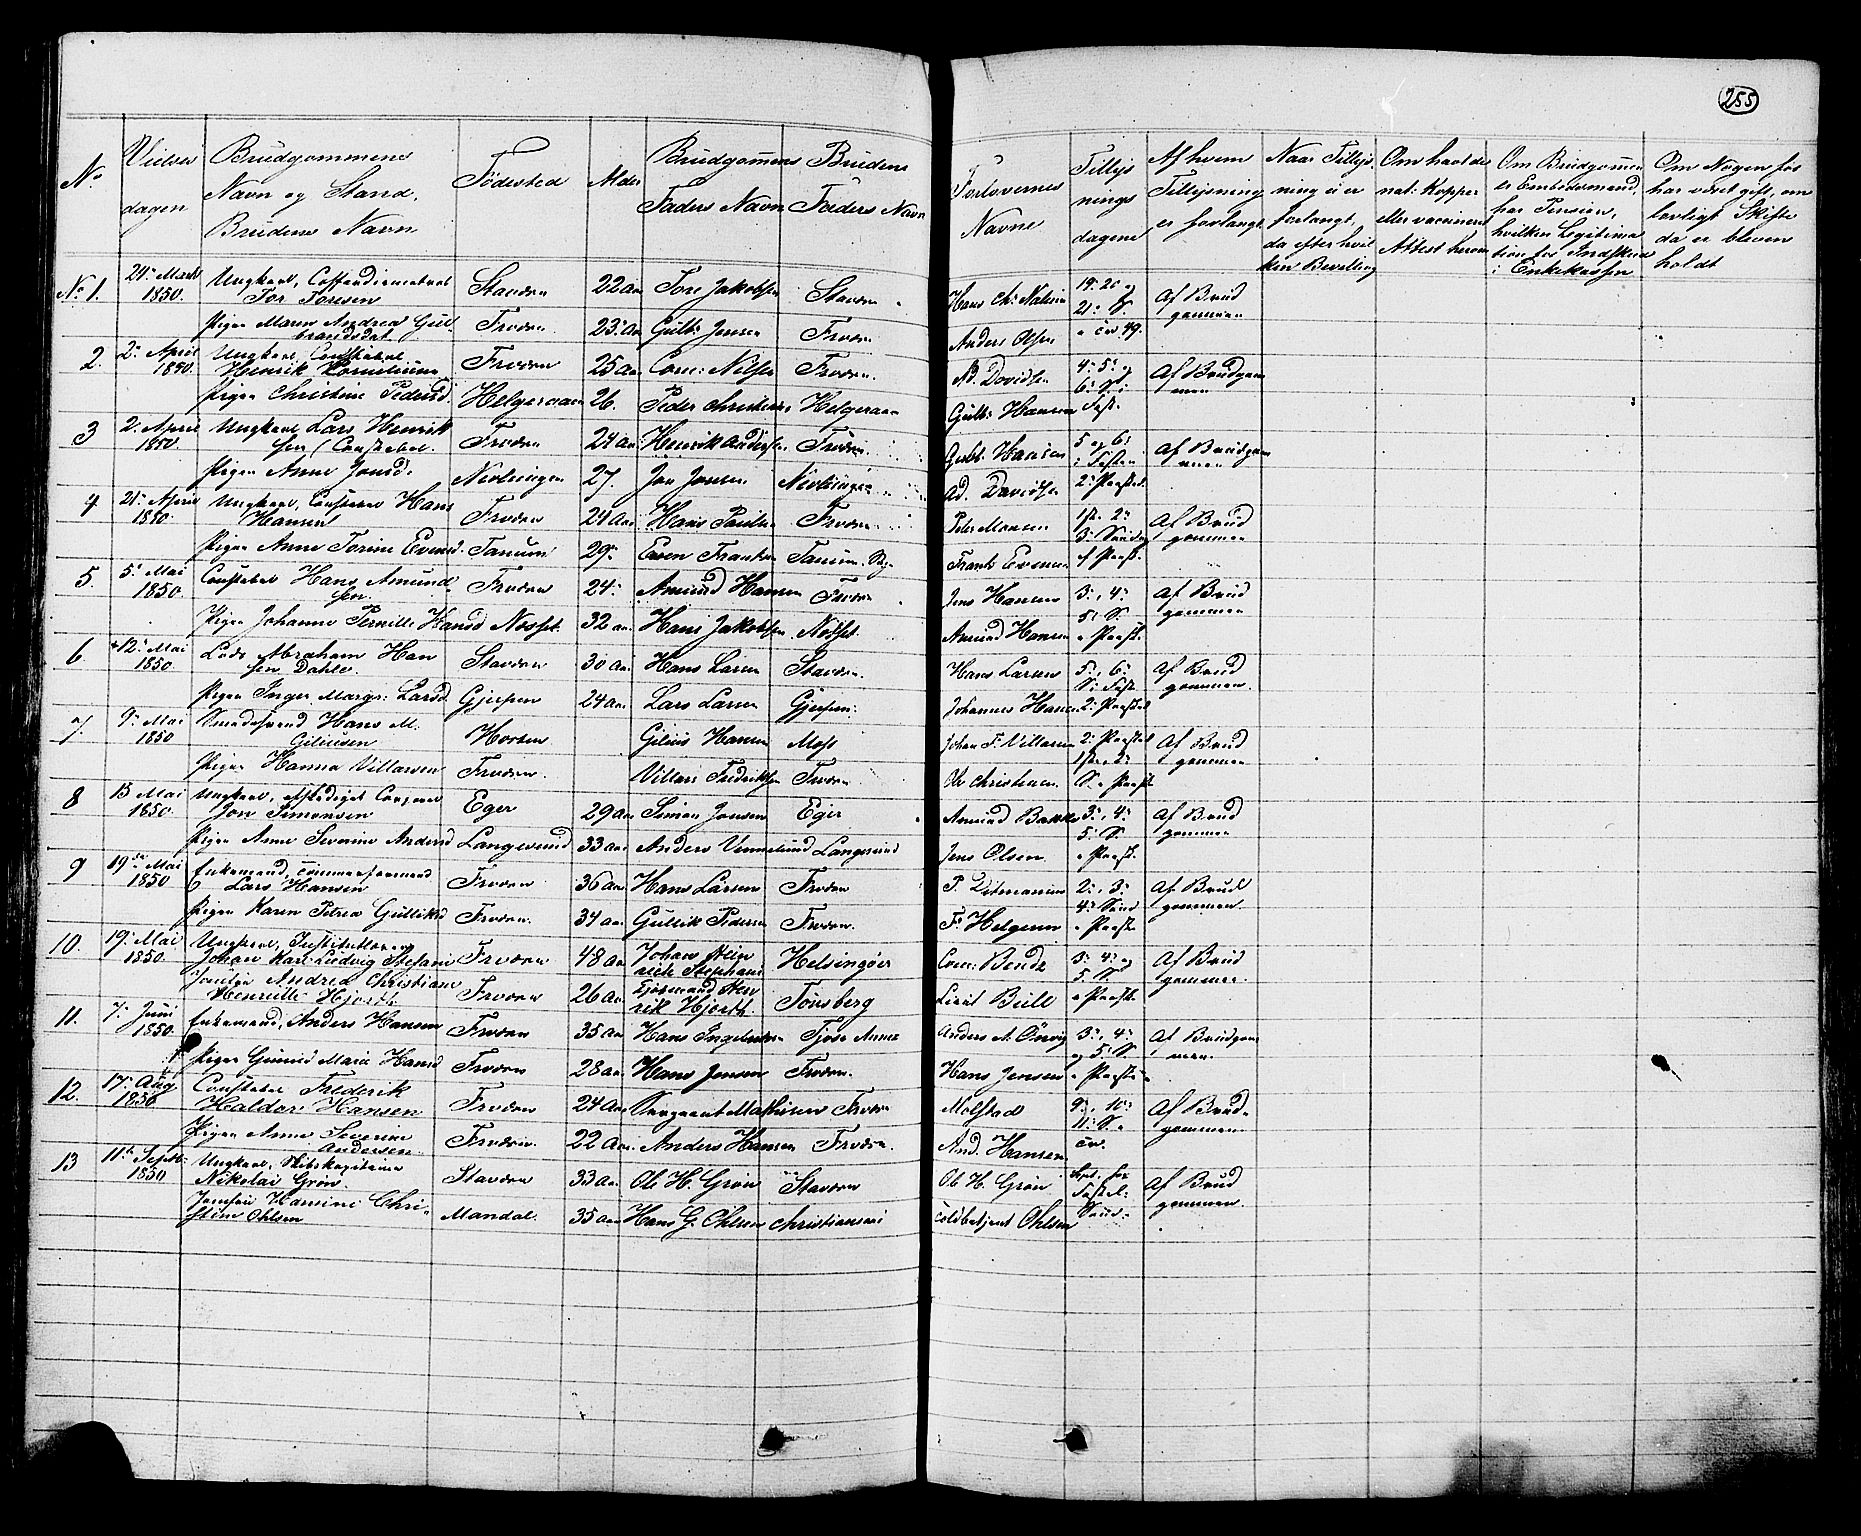 255
No Vielses dagen Brudgommens Navn og Stand, Brudens Navn Födested Alder Brudgomens Faders Navn Brudens Faders Navn Forlovernes Navne Tillysnings dagene Af hvem Tillysning er forlangt Naar Tillysning ei er forlangt, da efter hvilken Bevilling Om havt de nat. Kopper eller vaccineret Attest herom Om Brudgommen er Embedsmand, har Pension, hvilken Legitimation for Indskud i Enkekassen Om Nogen før har været gift, om lovligt Skifte da er bleven holdt
No 1. 24. Marts 1850. Ungkarl, Tor Toresen Stavern 22 Aar Tore Jakobsen Stavern Hans Chr. 19. 20 og 21. S. Af Brudgommen
Pigen Maren Andrea Gulbrandsdat Fredv. 23 Aar Gulb. Jensen Fredv. Anders Olsen
2. 2. April 1850. Ungkarl, Constabel Henrik Kornelius Fredvn 25 Aar Corn. Nilsen Fredvn. Ad. Davidsen 4. 5. og 6. S. i Fast. Af Brudgommen
Pigen Christine Pedersd. Helgeraaen 26. Peder Christens. Helgeraaen Gulb. Hansen
3 2. April 1850. Ungkarl Lars Henriksen (Constabel. Fredvn 24 Aar Henrik Andersen Fredvn. Gulb. Hansen 5 og 6. i Fasten Af Brudgommen
Pigen Anne Jonsd. Nevlungen 27. Jon Jonsen Nevlungen Ad. Davidsen 2. Paaskd.
4 21. April 1850. Ungkarl, Constabel Hans Hansen Fredvn 24 Aar Hans Paulsen Fredvn Peter Monsen 1ste 2. 3. Søndag e. Paask. Af Brudgommen
Pigen Anne Torine Evensd. Tanum 29. Even Frantsen Tanum Frants Evensen
5. 5. Mai 1850. Constabel Hans Amundsen. Fredvn 24. Amund Hansen Fredvn Jens Hansen 3., 4. 5. S. e. Paask. Af Brudgommen
Pigen Johanne Pernille Hansd Næsset. 32 Aar. Hans Jakobsen Næsset. Amund Hansen
6. 12. Mai 1850. Lods Abraham Hansen Dahle. Stavern 30 Aar Hans Larsen Stavern Hans Larsen 5., 6. S. i Fast. Af Brudgommen.
Pigen Inger Margr. Larsd Gjerpen 24 Aar Lars Larsen Gjerpen. Johannes Hansen 2. Paaskd.
7. 9. Mai 1850 Smedesvend Hans M. Giliusen Horten Gilius Hansen Moss Johan F. Villarsen 2. Paaskd. Af Brudgommen
Pigen Hanna Villarsen Fredvn. Villars Fredriksen Fredvn Ole Christensen. S. e. Paask.
8 15 Mai 1850. Ungkarl, Jon Simonsen Eger 29 Aar Simon Jonsen Eger Amund Bakke 3., 4. 5. S. e. Paask. Af Brudgommen
Pigen Anne Severine Andersd Langesund 33 Aar Anders Langesund Jens Olsen.
9 19de Mai 1850 Enkemand, Lars Hansen Fredvn 36 Aar Hans Larsen Fredvn P. 2., 3. 4. Sønd e. Paask. Af Brudgommen.
Pigen Karen Petrea Gulliksd Fredvn. 34 Aar Gullik Pedersen Fredvn. Fr. Helgesen
10. 19. Mai 1850. Ungkarl, Johan Karl Ludvig Stefani Fredvn 48 Aar Johan Heinrich Stephani Helsingør Corn. Bendz 3. 4. og 5. S. e. Paask. Af Brudgommen.
Jomfru Andrea Christiane Henriette Hjorth Fredvn 26 Aar Henrik Hjorth Tønsberg Lieut Bull
11. 7. Juni 1850. Enkemand, Anders Hansen Fredvn 35 Aar Hans Tjøse Hans Jensen 3., 4. og 5. S. e. Paaske Af Brudgommen.
Pigen Gunild Marie Hansd Fredvn 28 Aar Hans Jensen Fredvn.
12. 17. Aug 1850 Constabel Frederik Haldor Hansen Fredvn 24 Aar Sergeant Mathisen Fredvn Molstad 9., 10. 11. S. e. Af Brudgommen
Pigen Anne Severine Andersen Fredvn. 22 Aar. Anders Hansen Fredvn. And. Hansen
13 11te Septb. 1850 Ungkarl, Skibskapitaine Nikolai Grøn. Stavern 33 Aar Ole H. Grøn Stavern Ole H. Grøn Af Brudgommen.
Jomfru Hansine Christine Ohlsen Mandal. 35 Aar Hans G. Ohlsen Christiansand Toldbetjent Ohlsen